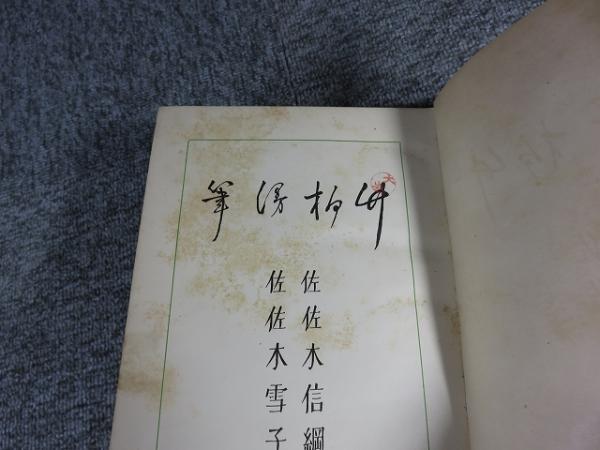 竹柏漫筆
佐佐木信綱
佐佐木雪子